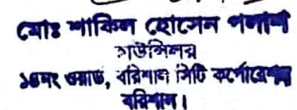 মোঃ শাকিল হোসেন পলাশ
কাউন্সিলর
১৪নং ওয়ার্ড, বরিশাল সিটি কর্পোরেশন
বরিশাল।